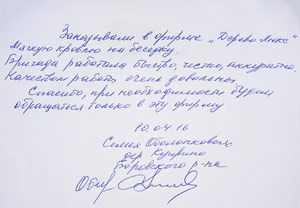 Заказывали в фирме „Дерево Люкс"
Мягкую кровлю на беседку.
Бригада работала быстро, чисто, аккуратно.
Качеством работы очень довольны.
Спасибо, при необходимости будем
обращаться только в эту фирму.
10.04.16
Семья
дер
Боровского р-на